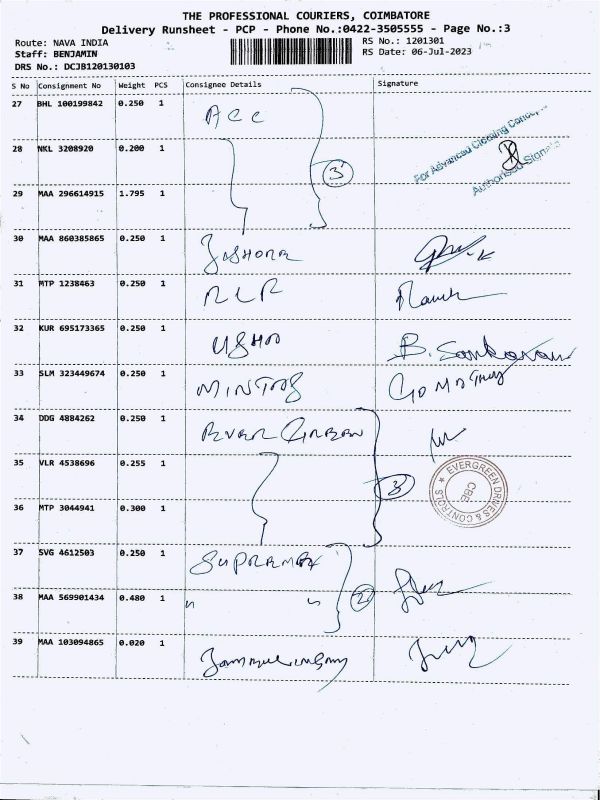 THE PROFESSIONAL COURIERS, COIMBATORE
Delivery Runsheet - PCP - Phone No.:0422-3505555 - Page No.:3
Route: NAVA INDIA
RS No.: 1201301
Staff: BENJAMIN
RS Date: 06-Jul-2023
DRS No.: DCJB120130103
S No Consignment No Weight PCS Consignee Details Signature
27 BHL 100199842 0.250 1 ACC
For Advanced Cleaning Concepts
28 NKL 3208920 0.200 1
3
Authorised Signato
29 MAA 296614915 1.795 1
30 MAA 860385865 0.250 1
31 MTP 1238463 0.250 1
32 KUR 695173365 0.250 1 USHA B. Sankaran
33 SLM 323449674 0.250 1 GOMATHY
34 DDG 4884262 0.250 1 EVER GREEN
35 VLR 4538696 0.255 1
3
EVERGREEN DRIVES & CONTROLS
CBE
36 MTP 3044941 0.300 1
37 SVG 4612503 0.250 1 SUPREMAX
38 MAA 569901434 0.480 1 " " 2
39 MAA 103094865 0.020 1